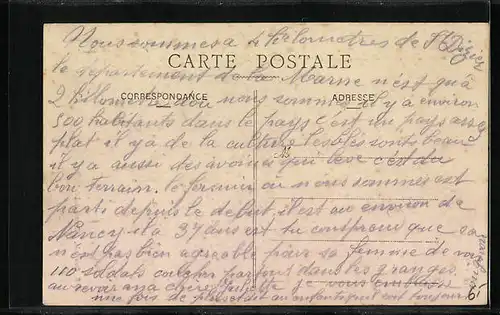 Nous sommes a 4 kilometres de St Dizier
CARTE POSTALE
le departement de la Marne n'est qu'à
CORRESPONDANCE
ADRESSE
2 kilometres d'ou nous sommes il y a environ
500 habitants dans le pays c'est un pays assez
plat il y a de la culture les blés sont beaux
il y a aussi des avoines qui c'est du
bon terrain. le fermier ou nous sommes est
parti depuis le debut, il est au environ de
Nancy il a 37 ans est tu comprend que ca
n'est pas bien agreable pour sa femme de voir
110 soldats coucher par tous dans les granges.
au revoir ma chere je vous embrasse
une fois de plus